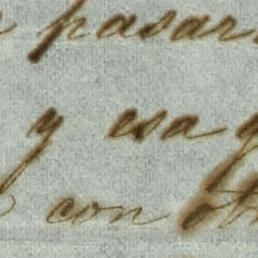 pasar
y esa
con